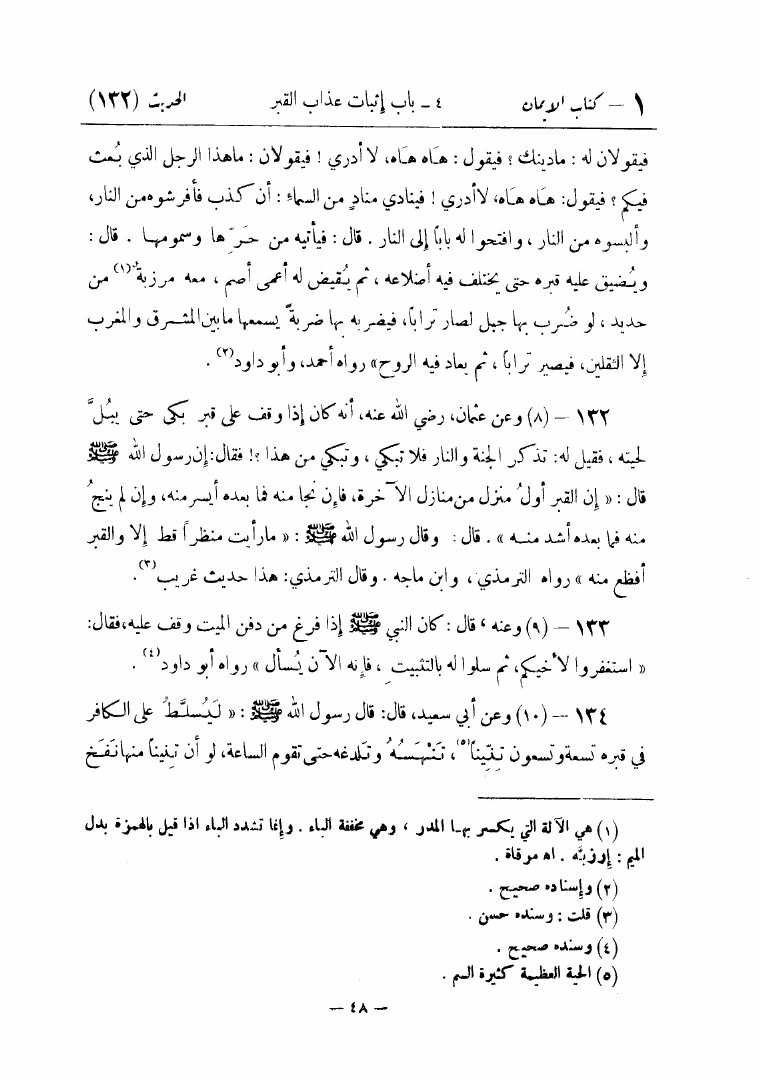 ١ – كتاب الإيمان ٤ ـ باب إثبات عذاب القبر الحديث (١٣٢)
فيقولان له : مادينك ؟ فيقول : هَاه هَاه، لا أدري ! فيقولان : ماهذا الرجل الذي بُعث
فيكم ؟ فيقول: هَاه هَاه، لاأدري ! فينادي منادٍ من السماءِ : أن كذب فأفرشوه من النار،
وألبسوه من النار ، وافتحوا له باباً إلى النار . قال : فيأتيه من حَرِّها وسمومها . قال :
ويُضيق عليه قبره حتى يختلف فيه أضلاعه ، ثم يُقيض له أعمى أصم ، معه مرزبة(١) من
حديد ، لو ضُرب بها جبل لصار تراباً، فيضربه بها ضربةً يسمعها مابين المشرق والمغرب
إلا الثقلين، فيصير تراباً ، ثم يعاد فيه الروح» رواه أحمد، وأبو داود(٢) .
١٣٢ – (٨) وعن عثمان، رضي الله عنه، أنه كان إذا وقف على قبر بكى حتى يبُلَّ
لحيته ، فقيل له: تذكر الجنة والنار فلا تبكي ، وتبكي من هذا ؟! فقال: إن رسول الله ﷺ
قال : « إن القبر أولُ منزل من منازل الآخرة، فإن نجا منه فما بعده أيسر منه، وإن لم ينجُ
منه فما بعده أشد منه » . قال : وقال رسول الله ﷺ : « مارأيت منظراً قط إلا والقبر
أفظع منه » رواه الترمذي ، وابن ماجه . وقال الترمذي: هذا حديث غريب(٣).
١٣٣ – (٩) وعنه ، قال : كان النبي ﷺ إذا فرغ من دفن الميت وقف عليه، فقال:
« استغفروا لأخيكم، ثم سلوا له بالتثبيت ، فإنه الآن يُسأل » رواه أبو داود(٤) .
١٣٤ – (١٠) وعن أبي سعيد، قال: قال رسول الله ﷺ : « لَيُسلَّطُ على الكافر
في قبره تسعة وتسعون تِنّيناً(٥)، تَنْهَسُهُ وتلدغه حتى تقوم الساعة، لو أن تِنيناً منها نَفَخ
(١) هي الآلة التي يكسر بها المدر ، وهي مخففة الباء . وإنما تشدد الباء اذا قيل بالهمزة بدل
الميم : إرزبَّه . اه مرقاة .
(٢) وإسناده صحيح .
(٣) قلت : وسنده حسن .
(٤) وسنده صحيح .
(٥) الحية العظيمة كثيرة السم .
– ٤٨ –